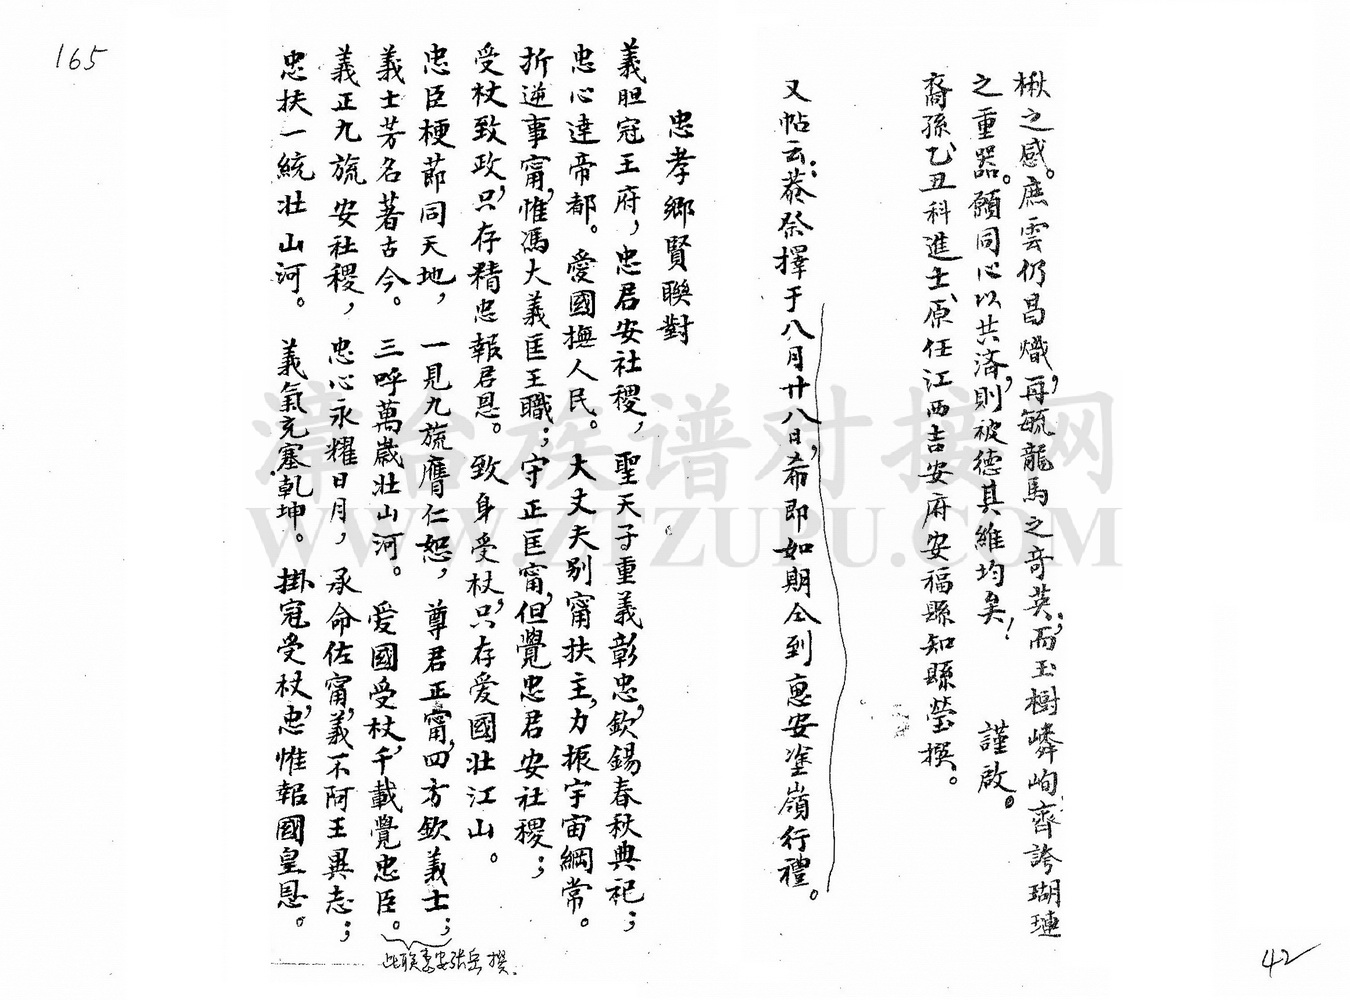 165
楸之感。庶雲仍昌熾，再毓龍馬之奇英；而玉樹嶙峋，齊誇瑚璉
之重器。願同心以共濟，則被德其維均矣！　謹啟。
裔孫乙丑科進士、原任江西吉安府安福縣知縣瑩撰。
又帖云：蔡祭擇于八月廿八日，希即如期仝到惠安塗嶺行禮。
忠孝鄉賢聯對
義胆冠王府，忠君安社稷，聖天子重義彰忠，欽錫春秋典祀；
忠心達帝都。愛國撫人民。大丈夫別甯扶主，力振宇宙綱常。
折逆事甯，惟馮大義匡王職；守正匡甯，但覺忠君安社稷；
受杖致政，只存精忠報君恩。致身受杖，只存爱國壯江山。
忠臣梗莭同天地，一見九旒膺仁恕，尊君正甯，四方欽義士；
義士芳名著古今。三呼萬歲壯山河。爱國受杖，千載覺忠臣。
義正九旒安社稷，忠心永耀日月，承命佐甯，義不阿王異志；
忠扶一統壯山河。義氣充塞乹坤。掛冠受杖，忠惟報國皇恩。
此联惠安张岳撰.
42
漳台族谱对接网
WWW.ZTZUPU.COM